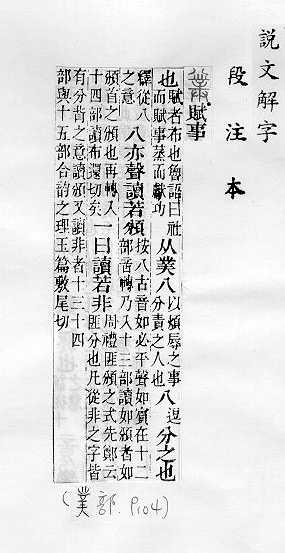 說文解字
段注本
賦事
也賦者布也魯語曰社而賦事蒸而獻功从菐八以煩辱之事分責之人也八逗分之也
釋從八之意八亦聲讀若頒按八古音如必平聲如賓在十二部音轉乃入十三部讀如頒者如
頒首之頒也再轉入十四部讀布還切矣一曰讀若非周禮匪頒之式先鄭云匪分也凡從非之字皆
有分背之意讀頒又讀非者十三十四部與十五部合韵之理玉篇敷尾切
(菐部.P104)